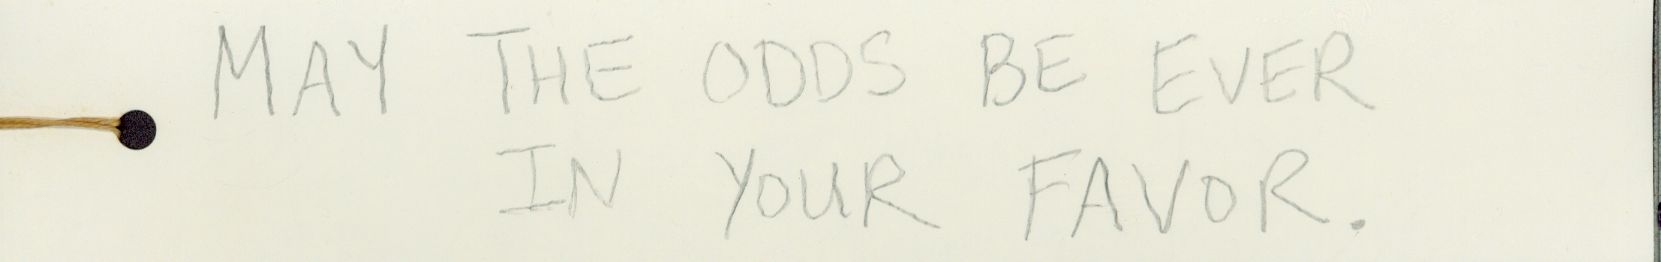 MAY THE ODDS BE EVER
IN YOUR FAVOR.